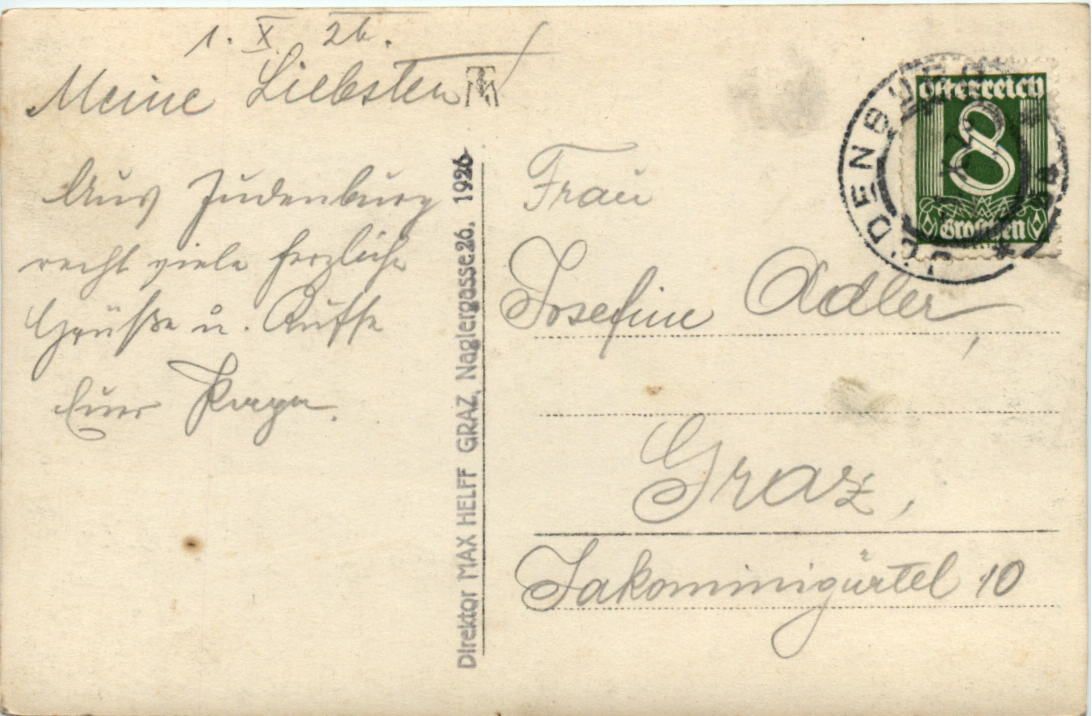 1. X. 26.
Meine Liebsten!
Aus Judenburg
recht viele herzliche
Grüße u. Küsse
Euer Papa.
Direktor MAX HELFF GRAZ, Naglergasse 26. 1926
Österreich
8
Groschen
JUDENBURG
Frau
Josefine Adler,
Graz,
Jakominigürtel 10